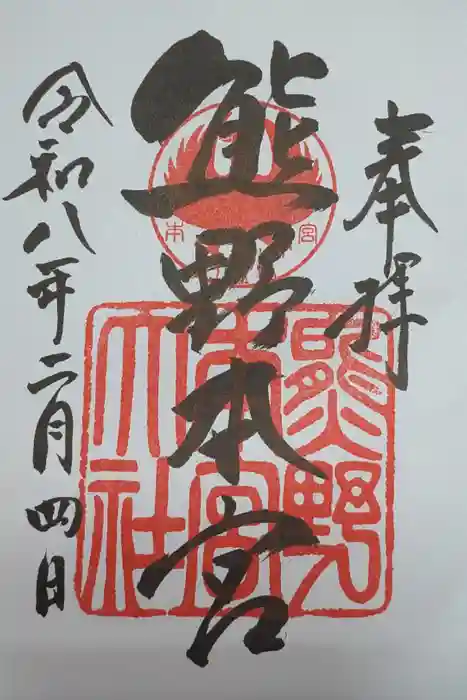 奉拝
熊野本宮
本宮
熊野
本宮
大社
令和八年二月四日